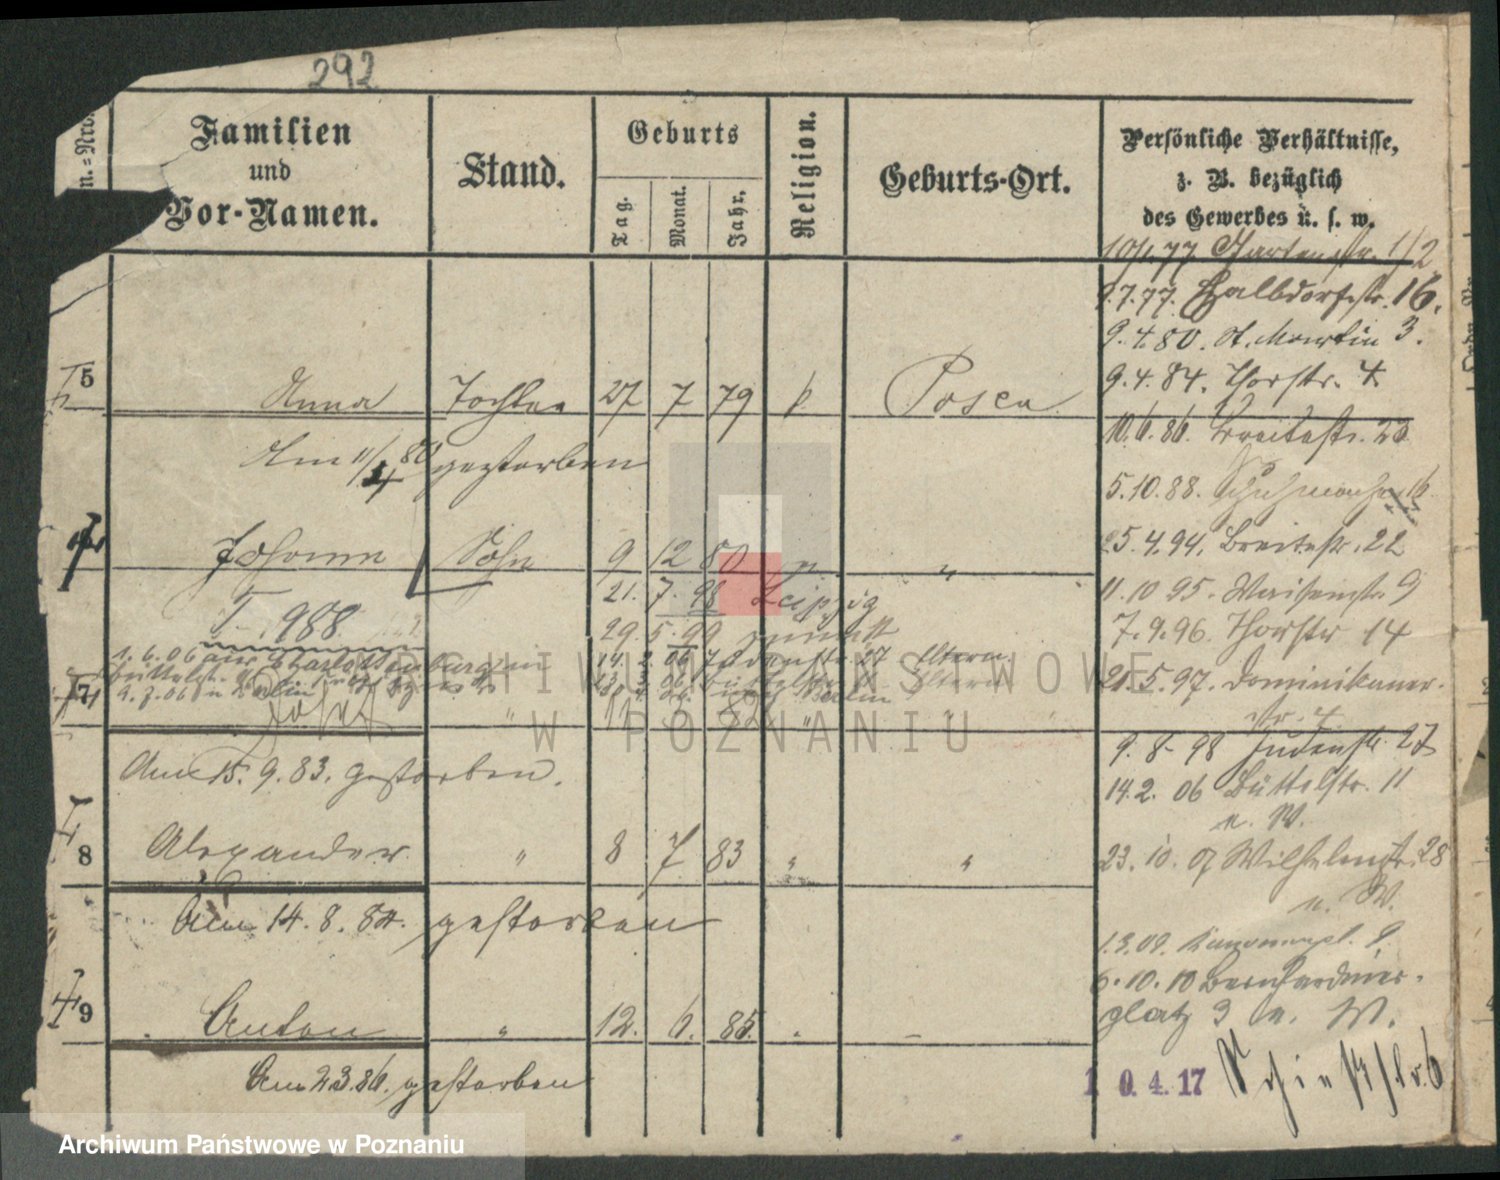 292
n.=Nro.
Familien
und
Vor-Namen.
Stand.
Geburts
Tag.
Monat.
Jahr.
Religion.
Geburts-Ort.
Persönliche Verhältnisse,
z. B. bezüglich
des Gewerbes u. s. w.
77 Gartenstr. 1/2
9.7.77. Halbdorfstr. 16.
9.4.80. St. Martin 3.
5 Anna Tochter 27 7 79 k Posen
9.4.84. Thorstr. 4
10.6.86. Breitestr. 23
Am 11/4 80 gestorben
5.10.88. Schuhmacherstr. 16
25.4.94. Breitestr. 22
Johann Sohn 9 12 80 " "
21. 7. 98 Leipzig
11.10 95. Waisenstr. 9
T. 988
29. 5. 99 zurück
7.9.96. Thorstr 14
1.6.06 Charlottenburg
14. 06 Judenstr. 27 Eltern
Eltern
9.7.06 Berlin
21.5.97. Dominikaner-
str. 7
7 Josef " 11 3 82 " "
9. 8. 98 Judenstr. 27
Am 15. 9. 83. gestorben.
14.2. 06 Büttelstr. 11
n. W.
8 Alexander " 8 7 83 " "
23. 10. 07 Wilhelmstr. 28
n. W.
Am 14. 8. 84. gestorben
1.3.09. Kanonenpl. 9
6.10.10 Bernhardiner-
platz 3 n. W.
9 Anton " 12. 6. 85. "
Am 2.3.86. gestorben
10.4.17 Schießstr. 6
ARCHIWUM PAŃSTWOWE
W POZNANIU
Archiwum Państwowe w Poznaniu